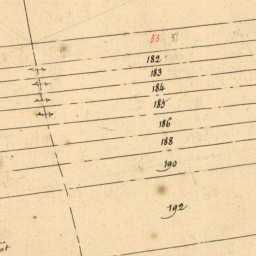 53
182
183
184
185
186
188
190
192